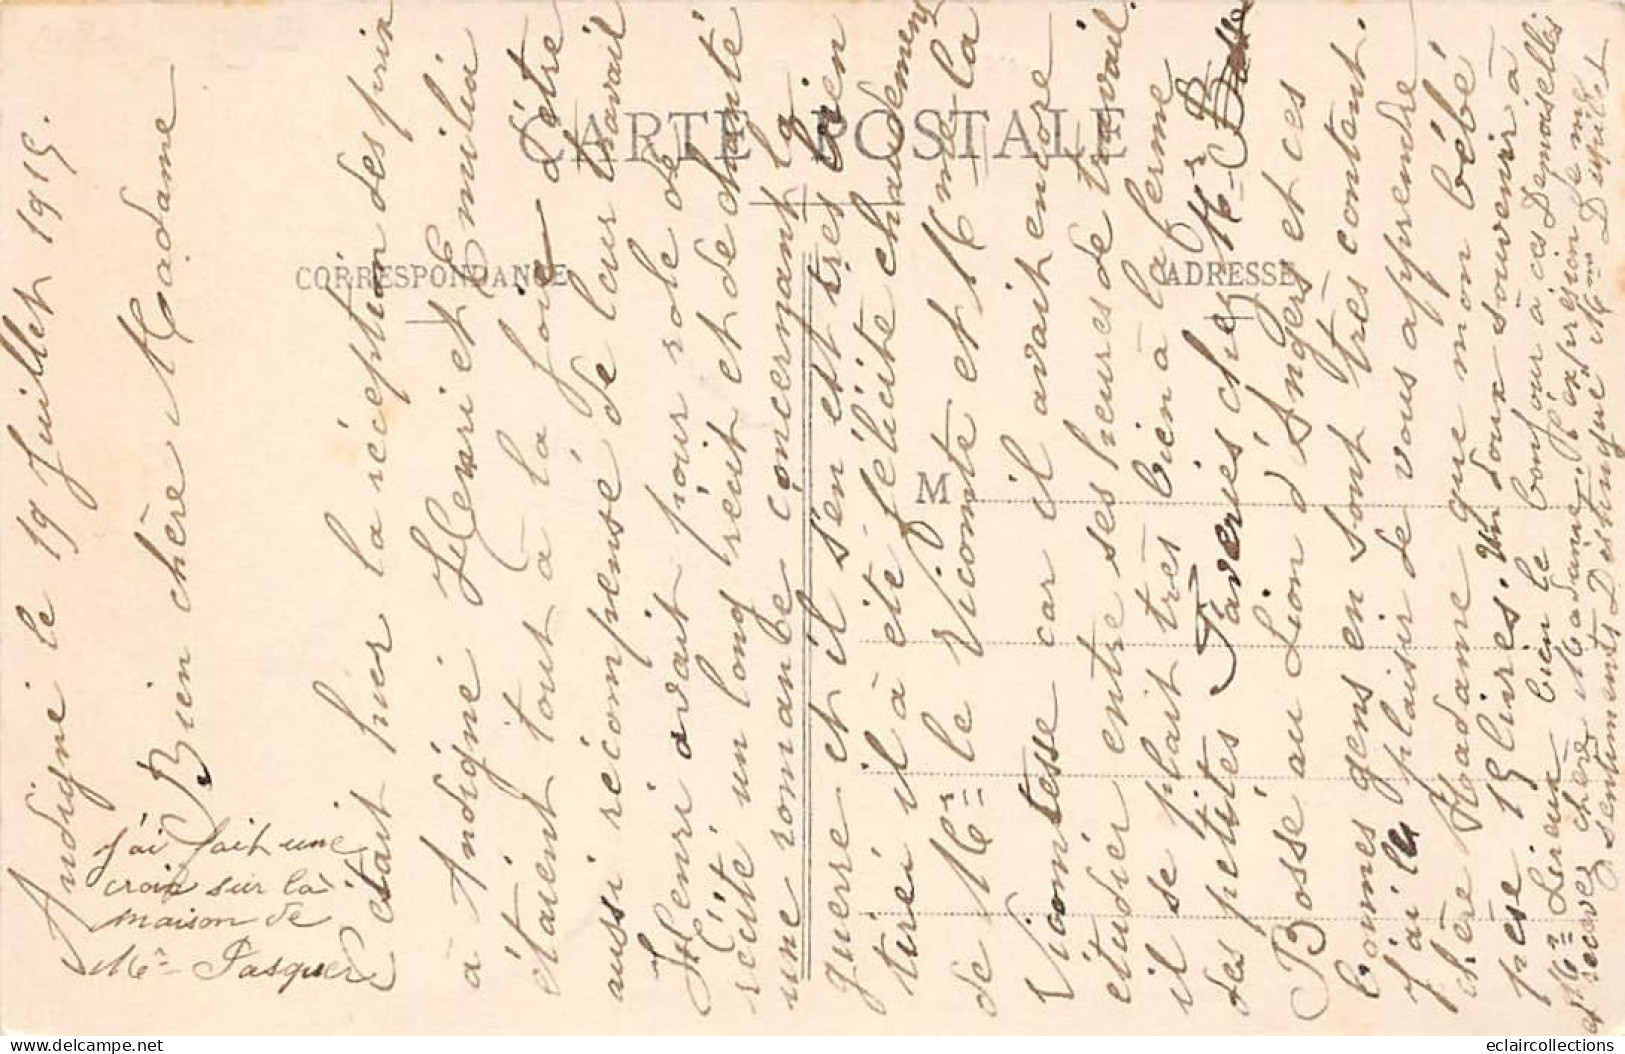 Andigné le 19 Juillet 1915.
Bien chère Madame
C'était hier la réception des prix
à Andigné Henri et Emilia
étaient tout à la joie d'être
aussi récompensé de leur travail
Henri avait pour role de
récité un long récit et de chanté
une romance concernant la
guerre et il s'en est très bien
tiré il à été félicité chaudement
de Mr le Vicomte et Mme la
Vicomtesse car il avait encore
étudier entre ses heures de travail.
il se plait très bien à la ferme
des petites Faveries chez Mr Bossé
Bosse au Lion d'Angers et ces
bonnes gens en sont très content.
J'ai le plaisir de vous apprendre
chère Madame que mon bébé
pèse 19 livres. Un doux souvenir à
Mr Lireux bien le bonjour à ces Demoiselles
et recevez chère Madame l'expression de mes
sentiments Distingué Mme Dupillet
J'ai fait une
croix sur la
maison de
Mr Pasquer
CARTE POSTALE
CORRESPONDANCE
ADRESSE
M
eclaircollections
delcampe.net